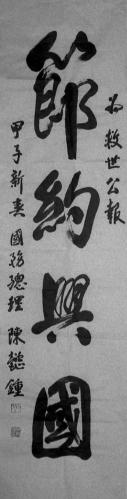 為救世公報
節約興國
甲子新春 國務總理 陳懿鍾